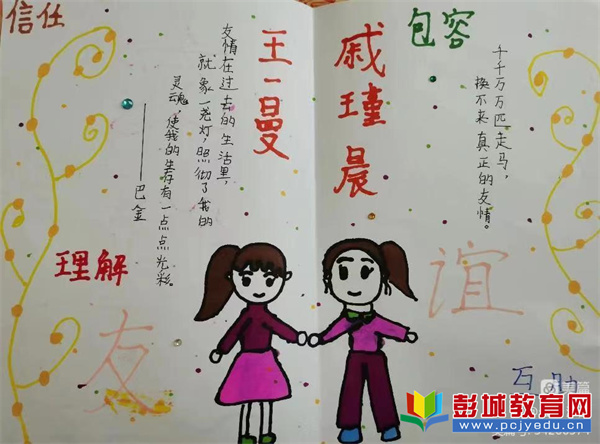 信任
友情在过去的生活里,
就象一盏灯,照彻了我的
灵魂,使我的生存有一点点光彩。
——巴金
王一曼
戚瑾晨
包容
千千万万匹走马,
换不来真正的友情。
理解
友
谊
互助
彭城教育网
www.pcjyedu.cn